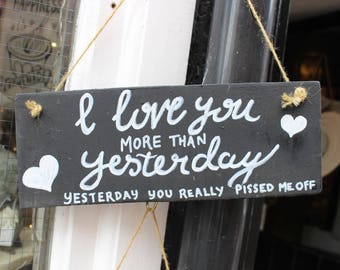 I love you
MORE THAN
yesterday
YESTERDAY YOU REALLY PISSED ME OFF